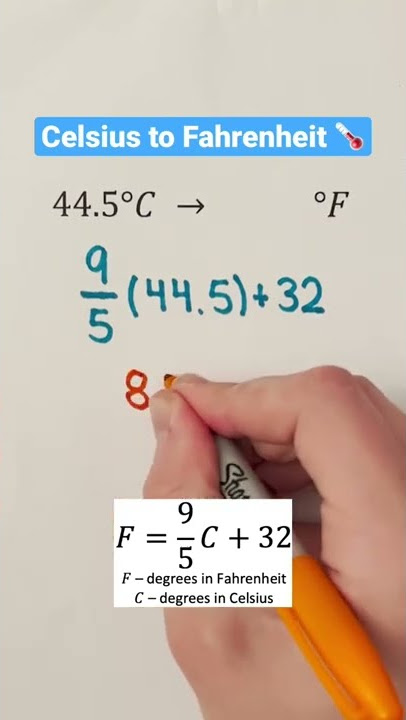 Celsius to Fahrenheit 🌡️
44.5°C → °F
9/5(44.5)+32
8
F = 9/5 C + 32
F – degrees in Fahrenheit
C – degrees in Celsius